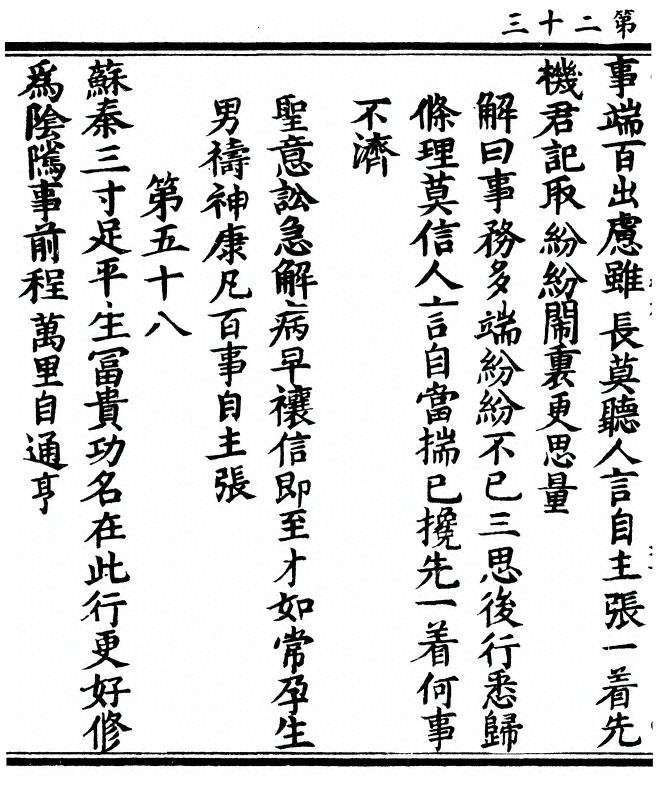 第二十三
事端百出慮雖長莫聽人言自主張一着先
機君記取紛紛鬧裏更思量
解曰事務多端紛紛不已三思後行悉歸
條理莫信人言自當揣已攙先一着何事
不濟
聖意訟急解病早禳信即至才如常孕生
男禱神康凡百事自主張
第五十八
蘇秦三寸足平生冨貴功名在此行更好修
爲陰隲事前程萬里自通亨